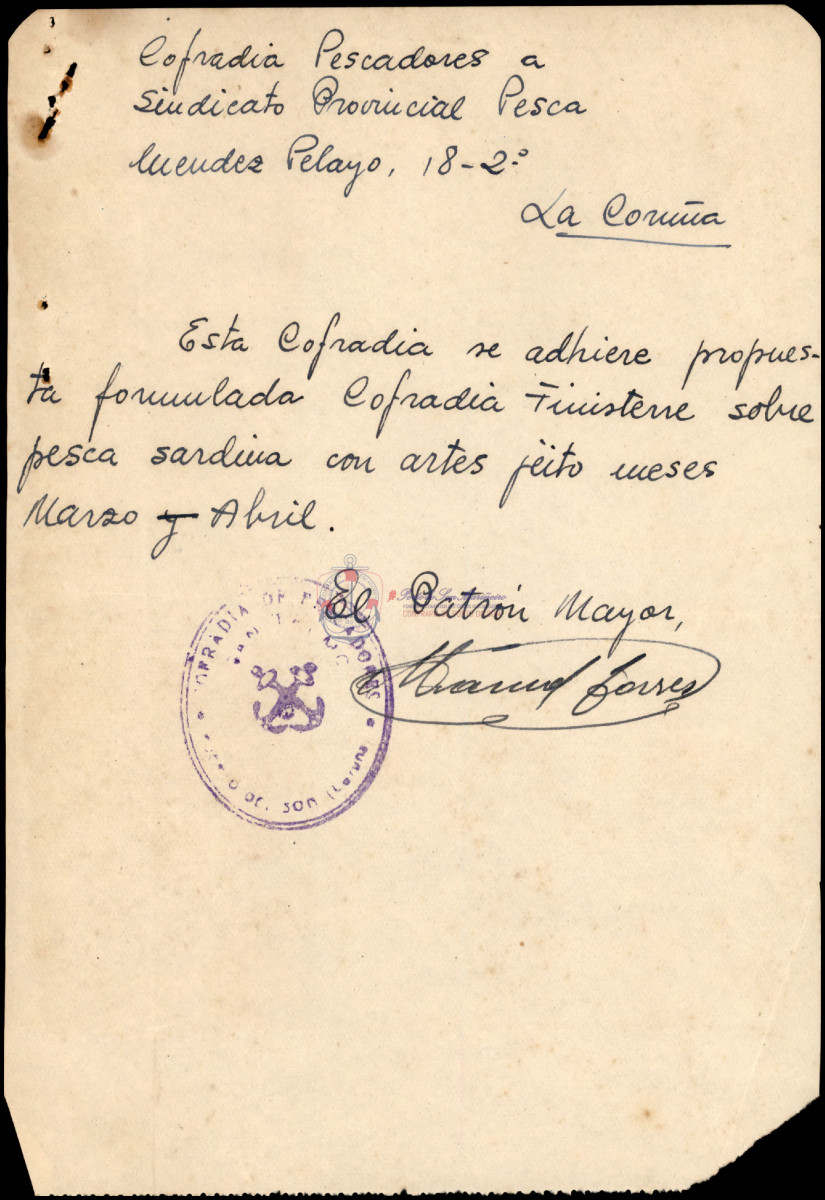 Cofradia Pescadores a
Sindicato Provincial Pesca
Mendez Pelayo, 18-2.º
La Coruña
Esta Cofradia se adhiere propues-
ta formulada Cofradia Finisterre sobre
pesca sardina con artes jeito meses
Marzo y Abril.
El Patrón Mayor,
Manuel Torres
COFRADIA DE PESCADORES
SAN TELMO
DEL SON (Coruña)